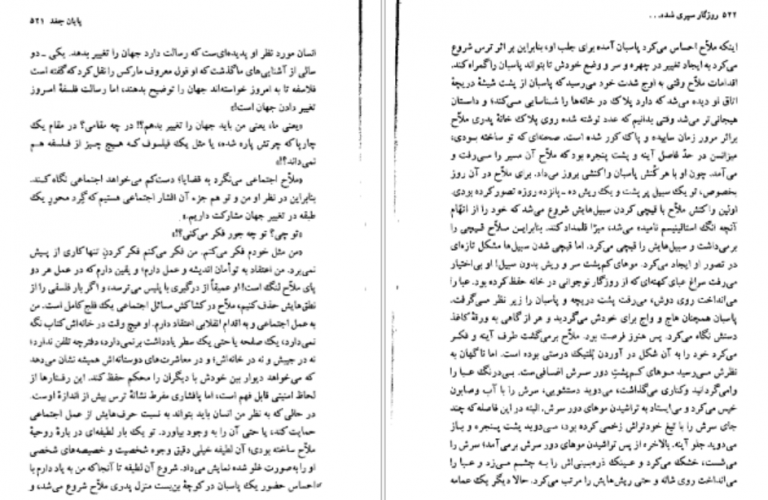 پایان جغد ۵۲۱
انسان مورد نظر او پدیده‌ای‌ست که رسالت دارد جهان را تغییر بدهد. یکی ـ دو
سالی از آشنایی‌های ما گذشت که او قول معروف مارکس را نقل کرد که گفته است
فلاسفه تا به امروز خواسته‌اند جهان را توضیح بدهند؛ اما رسالت فلسفهٔ امروز
تغییر دادن جهان است!»
«یعنی ما، یعنی من باید جهان را تغییر بدهم؟!! در چه مقامی؟ در مقام یک
چارپا که چرتش پاره شده، یا مثل یک فیلسوف که هیچ چیز از فلسفه هم
نمی‌داند؟!»
«ملاّح اجتماعی می‌نگرد به قضایا؛ دست‌کم می‌خواهد اجتماعی نگاه کند.
بنابراین در نظر او من و تو هم جزء آن اقشار اجتماعی هستیم که گِرد محور یک
طبقه در تغییر جهان مشارکت داریم.»
«تو چی؟ تو چه جور فکر می‌کنی؟!»
«من مثل خودم فکر می‌کنم. من فکر می‌کنم فکر کردن تنها کاری از پیش
نمی‌برد. من اعتقاد به توأمان اندیشه و عمل دارم؛ و یقین دارم که در عمل هر دو
پای ملاّح لنگ است! او عمیقاً از درگیری با پلیس می‌ترسد، و اگر بار فلسفی را از
نطق‌هایش حذف کنیم، ملاّح در کشاکش مسائل اجتماعی یک فلج کامل است. من
به عمل اجتماعی و به اقدام انقلابی اعتقاد دارم. او هیچ وقت در خانه‌اش کتاب نگه
نمی‌دارد، یک صفحه یا حتی یک سطر یادداشت برنمی‌دارد، دفترچه تلفن ندارد؛
نه در جیبش و نه در خانه‌اش؛ و در معاشرت‌های دوستانه‌اش همیشه نشان می‌دهد
که می‌خواهد دیوار بین خودش با دیگران را محکم حفظ کند. این رفتارها از
لحاظ امنیتی قابل فهم است، اما پافشاری مفرط نشانهٔ ترس بیش از اندازهٔ اوست.
در حالی که به نظر من انسان باید بتواند به نسبت حرف‌هایش از عمل اجتماعی
حمایت کند، یا حتی آن را به وجود بیاورد. تو یک بار لطیفه‌ای در بارهٔ روحیهٔ
ملاّح ساخته بودی؛ آن لطیفه خیلی دقیق وجوه شخصیت و خصیصه‌های شخصی
او را به‌صورت غلو شده نمایش می‌داد. شروع آن لطیفه تا آنجا که من به یاد دارم با
احساس حضور یک پاسبان در کوچهٔ بن‌بست منزل پدری ملاّح شروع می‌شد، و
۵۲۲ روزگار سپری شده...
اینکه ملاّح احساس می‌کرد پاسبان آمده برای جلب او، بنابراین بر اثر ترس شروع
می‌کرد به ایجاد تغییر در چهره و سر و وضع خودش تا بتواند پاسبان را گمراه کند.
اقدامات ملاّح وقتی به اوج شدت خود می‌رسید که پاسبان از پشت شیشهٔ دریچهٔ
اتاق او دیده می‌شد که دارد پلاک در خانه‌ها را شناسایی می‌کند؛ و داستان
هیجانی‌تر می‌شد وقتی بدانیم که عدد نوشته شده روی پلاک خانهٔ پدری ملاّح
براثر مرور زمان ساییده و پاک شده است. صحنه‌ای که تو ساخته بودی،
میزانسن در حدّ فاصل آینه و پشت پنجره بود که ملاّح آن مسیر را می‌رفت و
می‌آمد. چون او با هر کُنش پاسبان واکنشی بروز می‌داد. برای ملاّح در آن روز
بخصوص، تو یک سبیل پر پشت و یک ریش ده ـ پانزده روزه تصور کرده بودی.
اولین واکنش ملاّح با قیچی کردن سبیل‌هایش شروع می‌شد که خود را از اتّهام
آنچه انگ استالینیسم نامیده می‌شد، مبرّا قلمداد کند. بنابراین ملاّح قیچی را
برمی‌داشت و سبیل‌هایش را قیچی می‌کرد. اما قیچی شدن سبیل‌ها مشکل تازه‌ای
در تصور او ایجاد می‌کرد. موهای کم‌پشت سر و ریش بدون سبیل! او بی‌اختیار
می‌رفت سراغ عبای کهنه‌ای که از روزگار نوجوانی در خانه حفظ کرده بود. عبا را
می‌انداخت روی دوش، می‌رفت پشت دریچه و پاسبان را زیر نظر می‌گرفت.
پاسبان همچنان هاج و واج برای خودش می‌گردید و هر از گاهی به ورقهٔ کاغذ
دستش نگاه می‌کرد. پس هنوز فرصت بود. ملاّح برمی‌گشت طرف آینه و فکر
می‌کرد خود را به آن شکل در آوردن پُلتیک درستی بوده است. اما ناگهان به
نظرش می‌رسید موهای کم‌پشت دور سرش اضافی‌ست. بی‌درنگ عبا را
وامی‌گردانید و کناری می‌گذاشت، می‌دوید دستشویی، سرش را با آب و صابون
خیس می‌کرد و می‌ایستاد به تراشیدن موهای دور سرش. البته در این فاصله که چند
جای سرش را با تیغ خودتراش زخمی کرده بود، می‌دوید پشت پنجره و باز
می‌دوید جلو آینه. بالاخره از پس تراشیدن موهای دور سرش برمی‌آمد؛ سرش را
می‌شست، خشک می‌کرد و عینک ذره‌بینی‌اش را به چشم می‌زد و عبا را
می‌انداخت روی شانه و حتی ریش‌هایش را مرتب می‌کرد. حالا دیگر یک عمامه